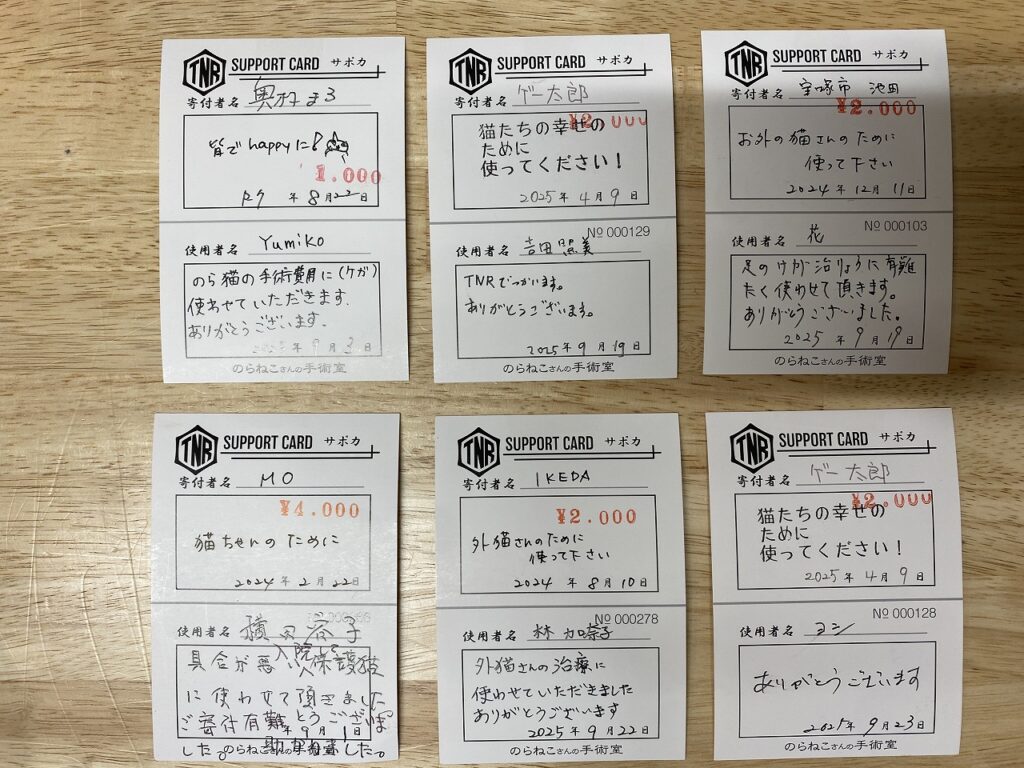 TNR SUPPORT CARD サポカ
寄付者名 奥村まる
皆でhappyに!
1.000
年 8月22日
使用者名 Yumiko
のら猫の手術費用に(ケガ)
使わせていただきます.
ありがとうございます.
年 9月3日
のらねこさんの手術室
TNR SUPPORT CARD サポカ
寄付者名 ゲー太郎
¥2.000
猫たちの幸せの
ために
使ってください!
2025年4月9日
№000129
使用者名 吉田照美
TNRでつかいます。
ありがとうございます。
2025年9月19日
のらねこさんの手術室
TNR SUPPORT CARD サポカ
寄付者名 宝塚市 池田
¥2.000
お外の猫さんのために
使って下さい
2024年12月11日
№000103
使用者名 花
足のけが治りょうに有難
たく使わせて頂きます。
ありがとうございました。
2025年9月19日
のらねこさんの手術室
TNR SUPPORT CARD サポカ
寄付者名 MO
¥4.000
猫ちゃんのために
2024年2月22日
使用者名
具合が悪い保護猫
入院
に使わせて頂きました
ご寄付有難とうございま
年9月1日
した。助かりました。
のらねこさんの手術室
TNR SUPPORT CARD サポカ
寄付者名 IKEDA
¥2.000
外猫さんのために
使って下さい
2024年8月10日
№000278
使用者名 林 加奈子
外猫さんの治療に
使わせていただきました
ありがとうございます
2025年9月22日
のらねこさんの手術室
TNR SUPPORT CARD サポカ
寄付者名 ゲー太郎
¥2.000
猫たちの幸せの
ために
使ってください!
2025年4月9日
№000128
使用者名 ヨシ
ありがとうございます
2025年9月23日
のらねこさんの手術室